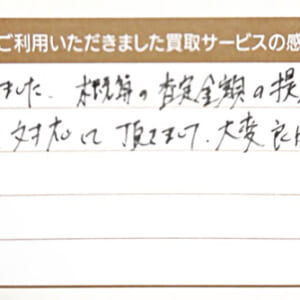 ご利用いただきました買取サービスの感
ました、概算の査定金額の提
対応して頂きまして、大変良